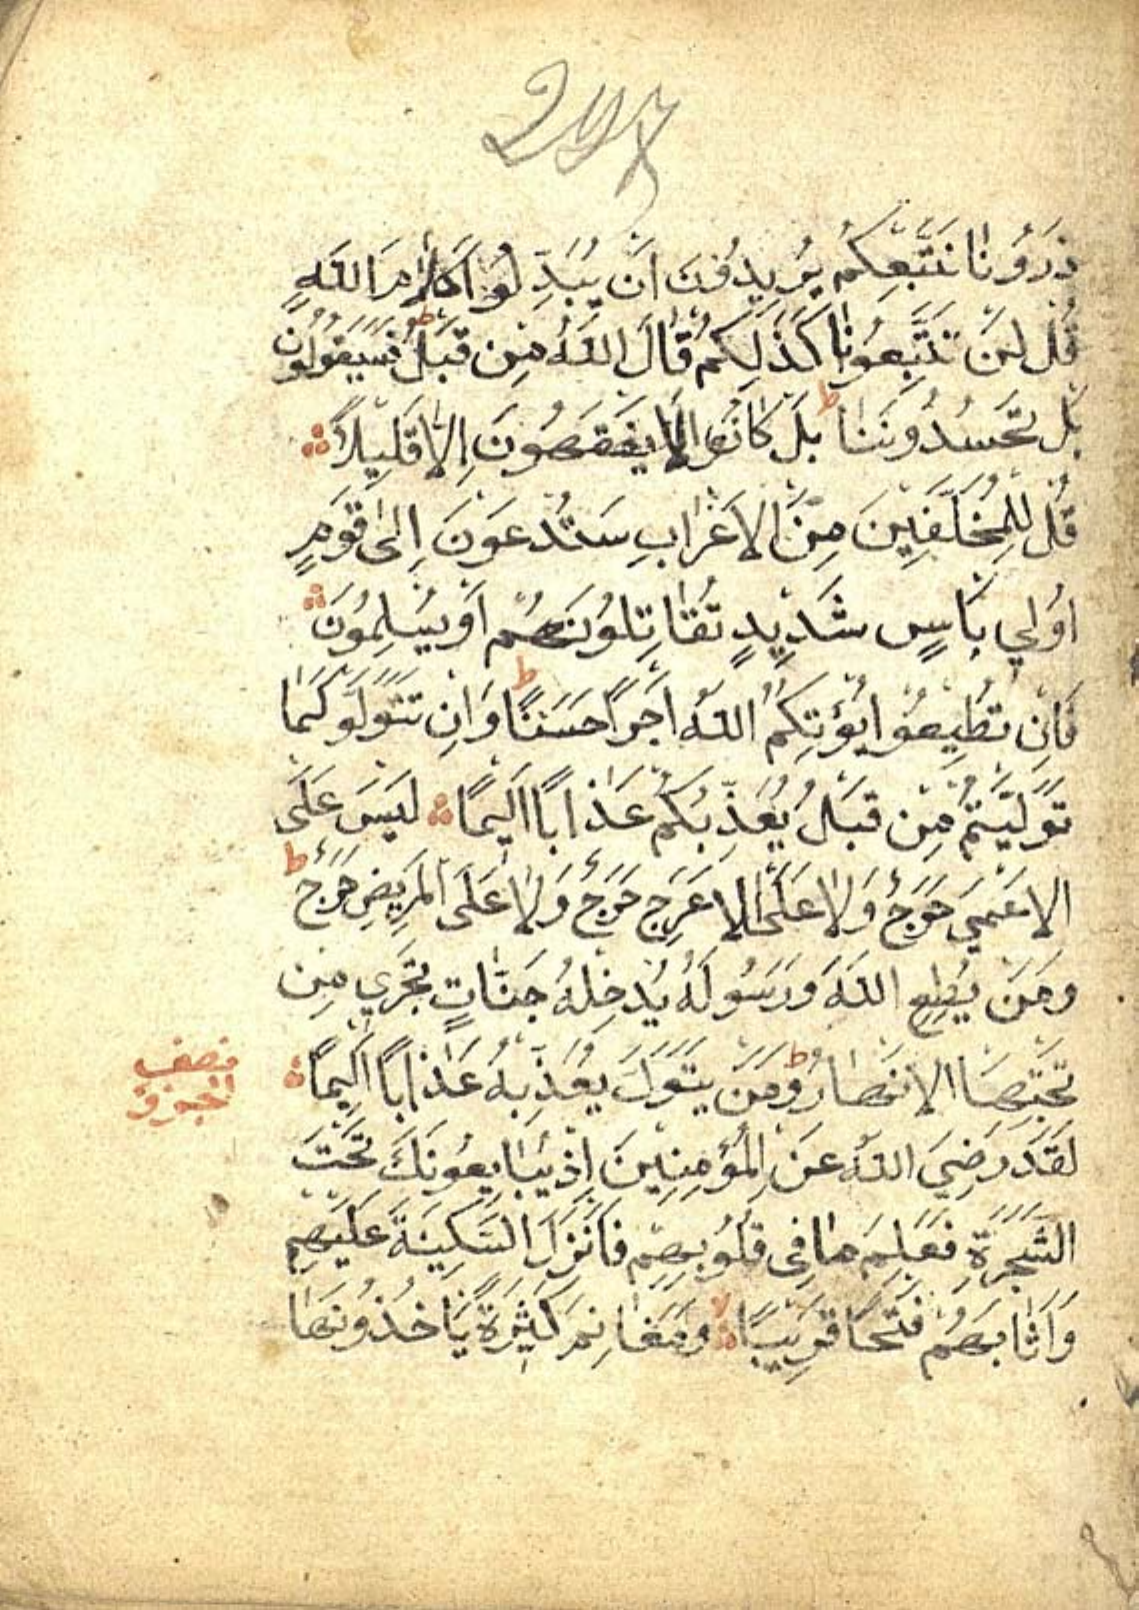 ذَرُونَا نَتَّبِعْكُمْ يُرِيدُونَ اَنْ يُبَدِّلُوا كَلَامَ اللّٰهِ
قُلْ لَنْ تَتَّبِعُونَا كَذٰلِكُمْ قَالَ اللّٰهُ مِنْ قَبْلُ ط فَسَيَقُولُونَ
بَلْ تَحْسُدُونَنَا ط بَلْ كَانُوا لَا يَفْقَهُونَ اِلَّا قَلِيلًا
قُلْ لِلْمُخَلَّفِينَ مِنَ الْاَعْرَابِ سَتُدْعَوْنَ اِلٰى قَوْمٍ
اُولِي بَاْسٍ شَدِيدٍ تُقَاتِلُونَهُمْ اَوْ يُسْلِمُونَ
فَاِنْ تُطِيعُوا يُؤْتِكُمُ اللّٰهُ اَجْرًا حَسَنًا ط وَاِنْ تَتَوَلَّوْا كَمَا
تَوَلَّيْتُمْ مِنْ قَبْلُ يُعَذِّبْكُمْ عَذَابًا اَلِيمًا لَيْسَ عَلَى
الْاَعْمٰي حَرَجٌ وَلَا عَلَى الْاَعْرَجِ حَرَجٌ وَلَا عَلَى الْمَرِيضِ حَرَجٌ ط
وَمَنْ يُطِعِ اللّٰهَ وَرَسُولَهُ يُدْخِلْهُ جَنَّاتٍ تَجْرِي مِنْ
تَحْتِهَا الْاَنْهَارُ ط وَمَنْ يَتَوَلَّ يُعَذِّبْهُ عَذَابًا اَلِيمًا
نصف
لَقَدْ رَضِيَ اللّٰهُ عَنِ الْمُؤْمِنِينَ اِذْ يُبَايِعُونَكَ تَحْتَ
الشَّجَرَةِ فَعَلِمَ مَا فِي قُلُوبِهِمْ فَاَنْزَلَ السَّكِينَةَ عَلَيْهِمْ
وَاَثَابَهُمْ فَتْحًا قَرِيبًا لا وَمَغَانِمَ كَثِيرَةً يَاْخُذُونَهَا